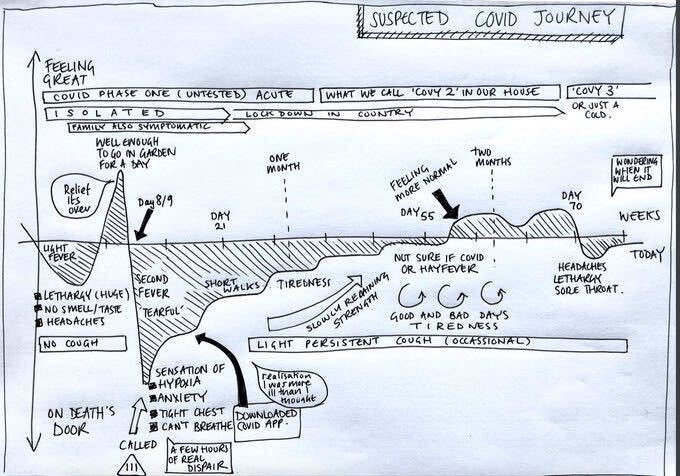 SUSPECTED COVID JOURNEY
FEELING
GREAT
COVID PHASE ONE (UNTESTED) ACUTE
WHAT WE CALL 'COVY 2' IN OUR HOUSE
'COVY 3'
OR JUST A
COLD.
ISOLATED
LOCKDOWN IN COUNTRY
FAMILY ALSO SYMPTOMATIC
WELL ENOUGH
TO GO IN GARDEN
FOR A DAY
Relief
its
over
Day 8/9
DAY
21
ONE
MONTH
FEELING
MORE NORMAL
TWO
MONTHS
DAY 55
DAY
70
WONDERING
WHEN IT
WILL END
WEEKS
TODAY
LIGHT
FEVER
SECOND
FEVER
'TEARFUL'
SHORT
WALKS
TIREDNESS
SLOWLY REGAINING
STRENGTH
NOT SURE IF COVID
OR HAYFEVER
GOOD AND BAD DAYS
TIREDNESS
HEADACHES
LETHARGY
SORE THROAT.
LETHARGY (HUGE)
NO SMELL/TASTE
HEADACHES
NO COUGH
LIGHT PERSISTENT COUGH (OCCASSIONAL)
SENSATION OF
HYPOXIA
ANXIETY
TIGHT CHEST
CAN'T BREATHE
realisation
I was more
ill than I
thought
DOWNLOADED
COVID APP.
ON DEATH'S
DOOR
CALLED
111
A FEW HOURS
OF REAL
DISPAIR